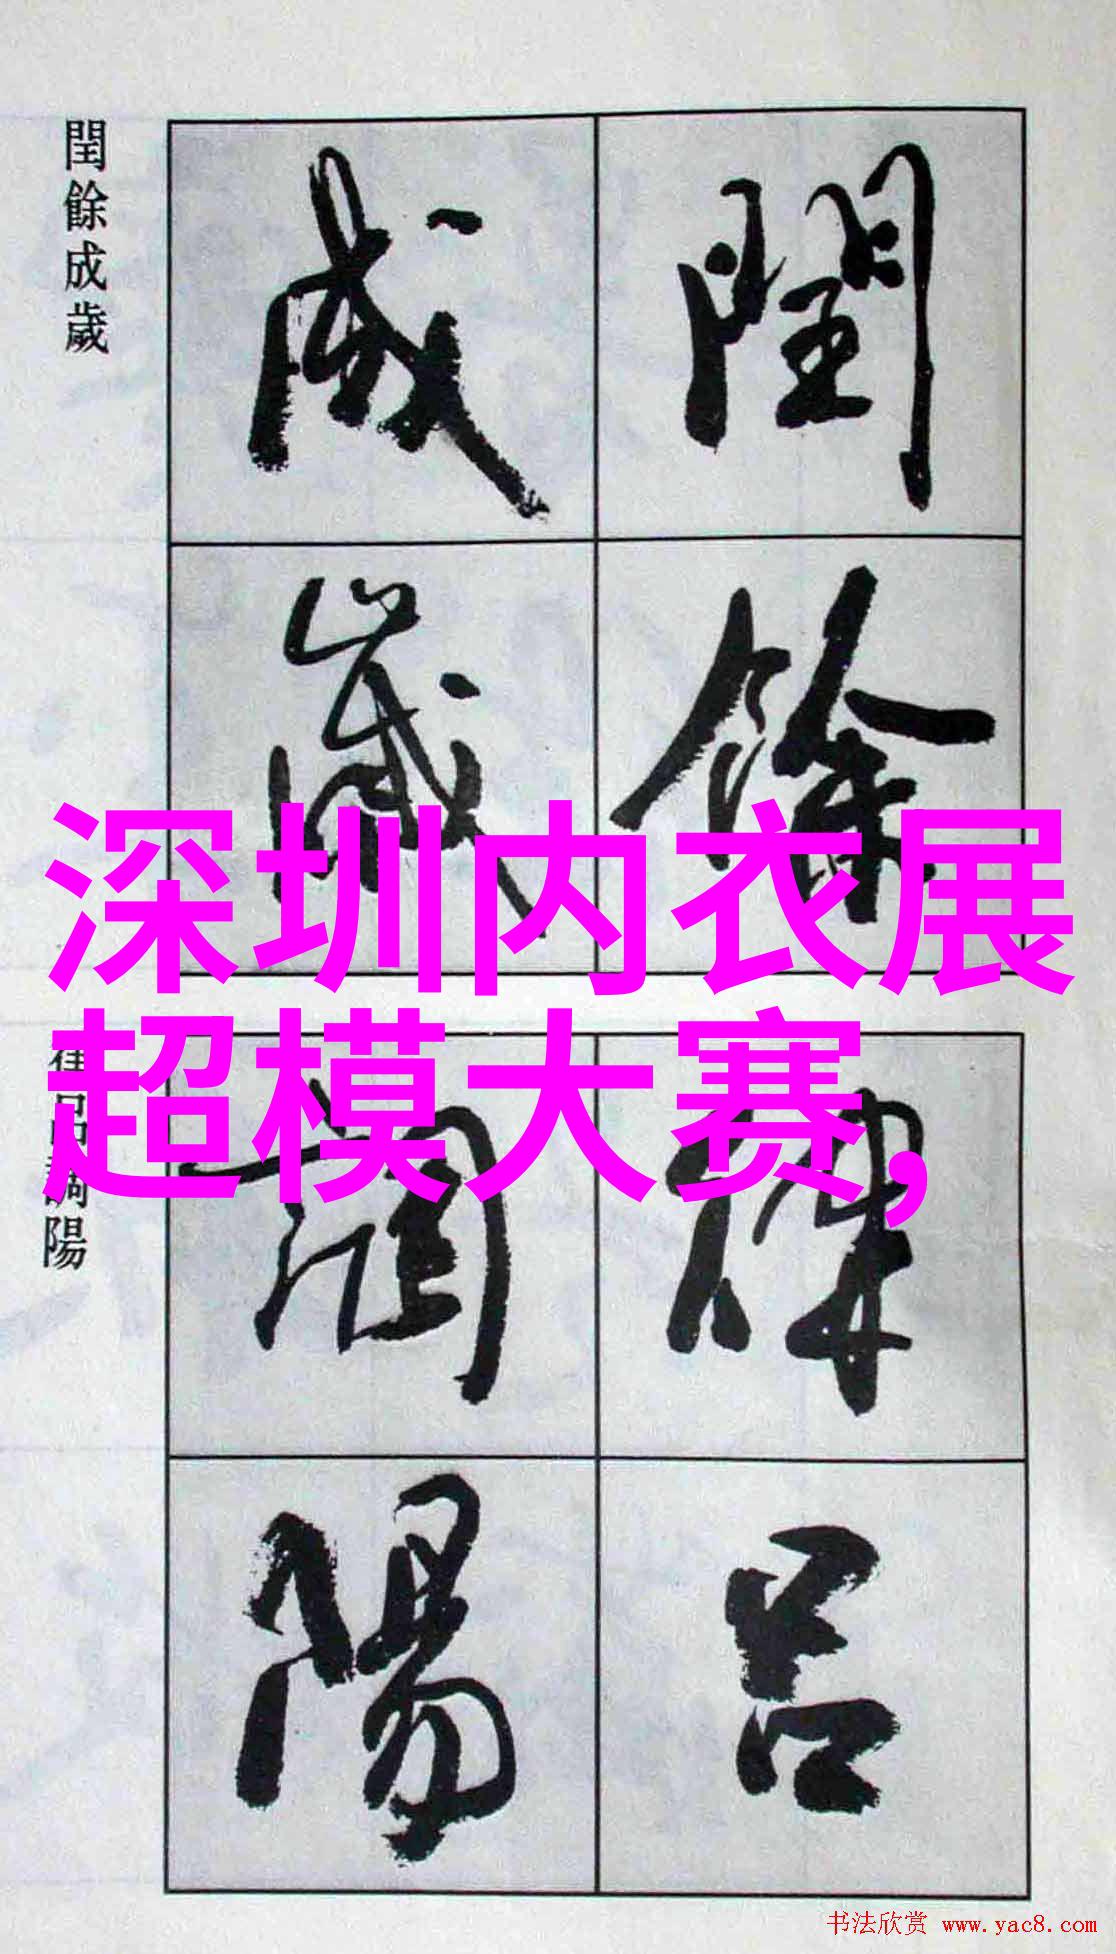 閏餘
成歲
閏餘成歲
律呂
調陽
呂調陽
深圳内衣展
超模大赛,
书法欣赏 www.yac8.com